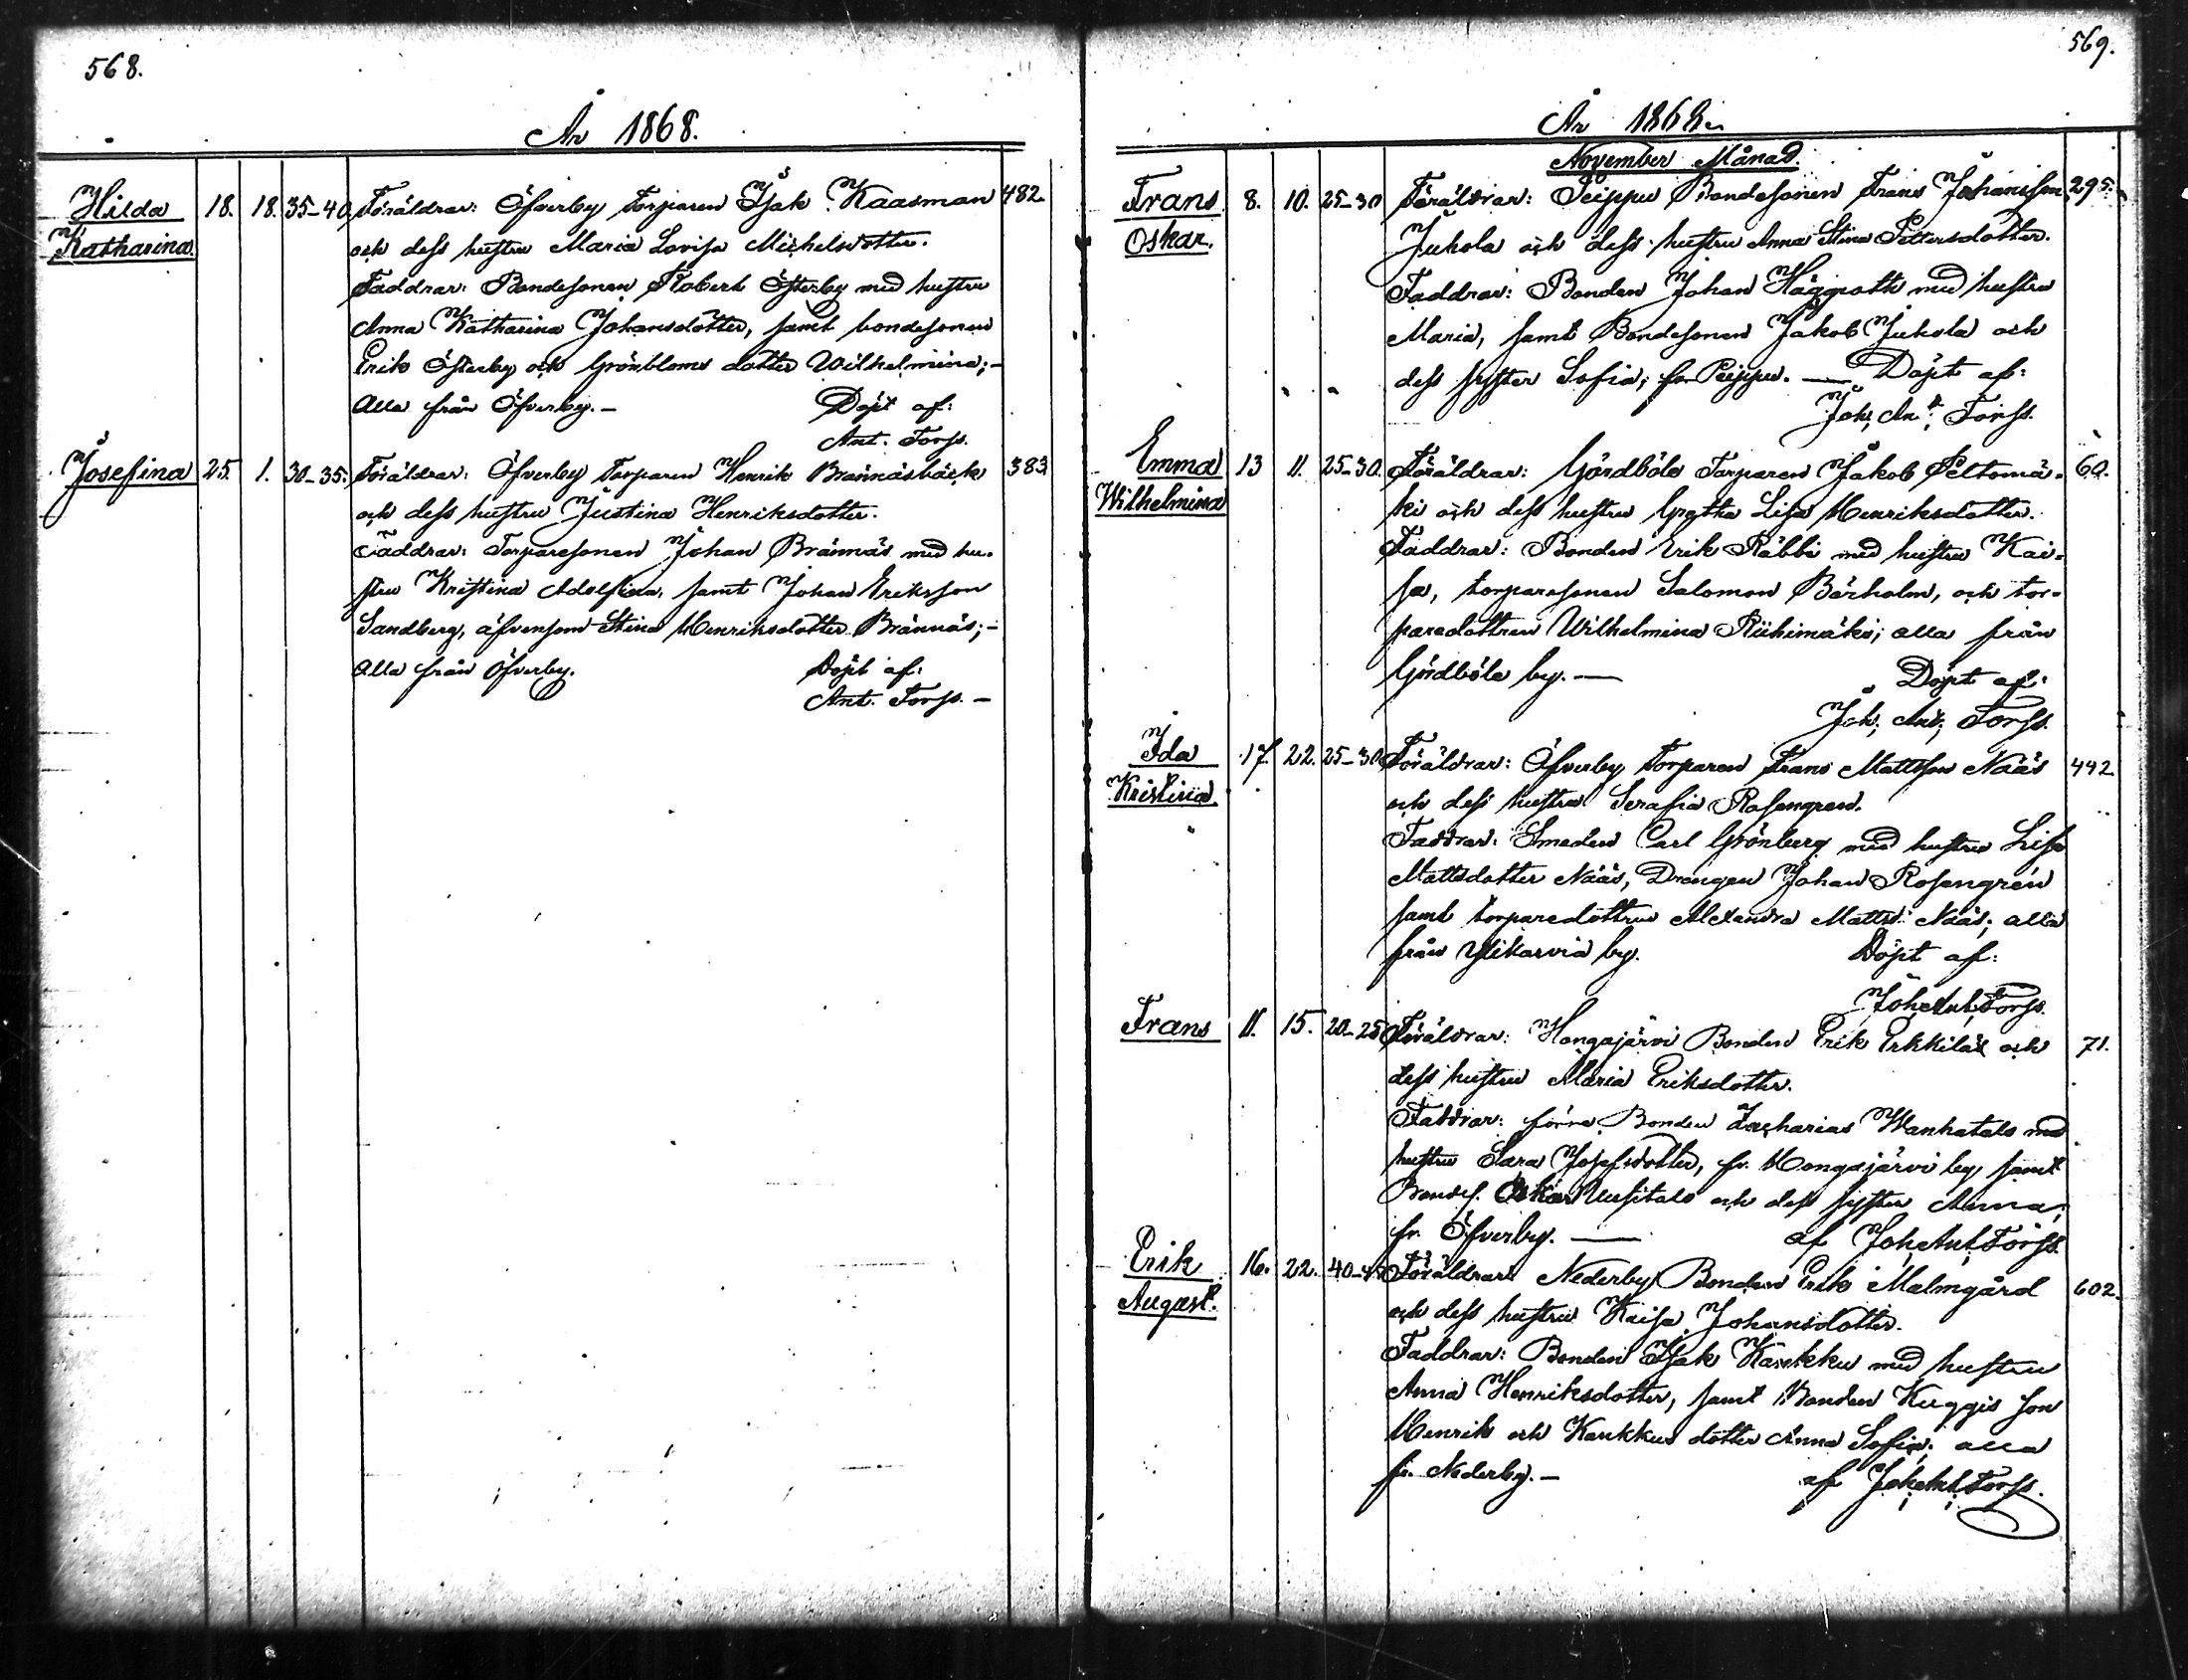 568.
År 1868.
Hilda 18. 18. 35-40 Föräldrar: Öfverby Torparen Isak Kaasman 482.
Katharina. och dess hustru Maria Lovisa Michelsdotter.
Faddrar: Bondesonen Robert Österby med hustru
Anna Katharina Johansdotter, samt bondesonen
Erik Österby och Grönbloms dotter Wilhelmina;-
Alla från Öfverby.- Döpt af:
Ant. Forss.
Josefina 25. 1. 30-35. Föräldrar: Öfverby Torparen Henrik Brännäsbäck 383.
och dess hustru Justina Henriksdotter.
Faddrar: Torparesonen Johan Brännäs med hu-
stru Kristina Adolfina, samt Johan Eriksson
Sandberg, äfvensom Stina Henriksdotter Brännäs;-
Alla från Öfverby. Döpt af:
Ant. Forss. -
569.
År 1868.
November Månad.
Frans 8. 10. 25-30 Föräldrar: Peippu Bondesonen Frans Johansson 295.
Oskar. Jukola och dess hustru Anna Stina Pettersdotter.
Faddrar: Bonden Johan Häggroth med hustru
Maria, samt Bondesonen Jakob Jukola och
dess syster Sofia; fr. Peippu. — Döpt af:
Joh. An. Forss.
Emma 13 11. 25-30. Föräldrar: Gördböle Torparen Jakob Peltomä- 60.
Wilhelmina ki och dess hustru Gretha Lisa Henriksdotter.
Faddrar: Bonden Erik Räbbi med hustru Kai-
sa, torparesonen Salomon Bärholm, och tor-
paredottren Wilhelmina Riihimäki; alla från
Gördböle by. — Döpt af:
Joh. Ant. Forss.
Ida 17. 22. 25-30 Föräldrar: Öfverby Torparen Frans Mattsson Nääs 442
Kristina. och dess hustru Serafia Rosengren.
Faddrar: Smeden Carl Grönberg med hustru Lisa
Mattsdotter Nääs, Drängen Johan Rosengrén
samt torparedottren Alexandra Matts. Nääs; alla
från Ylikarvia by. Döpt af:
Joh. Ant. Forss.
Frans 11. 15. 20-25 Föräldrar: Hongajärvi Bonden Erik Erkkilä och 71.
dess hustru Maria Eriksdotter.
Faddrar: förre Bonden Zacharias Wanhatalo med
hustru Sara Josefsdotter, fr. Hongajärvi by samt
Bondes. Oskar Uusitalo och dess syster Anna;
fr. Öfverby. — af Joh. Ant. Forss.
Erik 16. 22. 40-45 Föräldrar: Nederby Bonden Erik Malmgård 602.
August. och dess hustru Kaisa Johansdotter.
Faddrar: Bonden Isak Karkku med hustru
Anna Henriksdotter, samt Bonden Kuggis son
Henrik och Karkkus dotter Anna Sofia; alla
fr. Nederby.- af Joh. Ant. Forss.